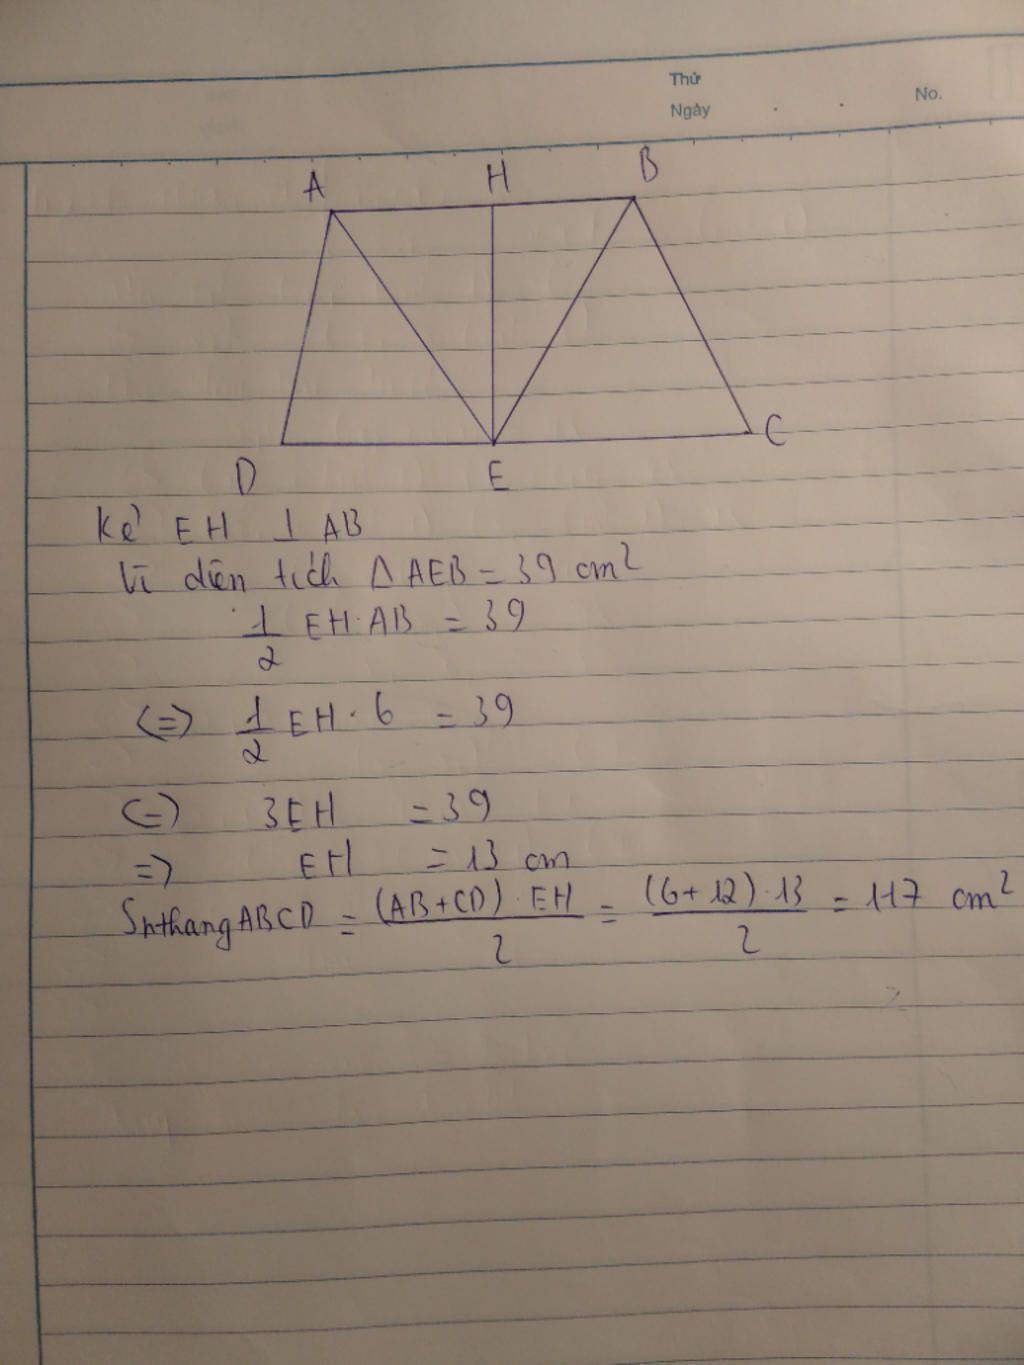 Thứ
Ngày . . No.
A H B
D E C
Kẻ EH ⊥ AB
Vì diện tích ΔAEB = 39 cm²
1/2 EH·AB = 39
(=) 1/2 EH · 6 = 39
(=) 3EH = 39
=) EH = 13 cm
ShthangABCD = (AB+CD)·EH/2 = (6+12)·13/2 = 117 cm²